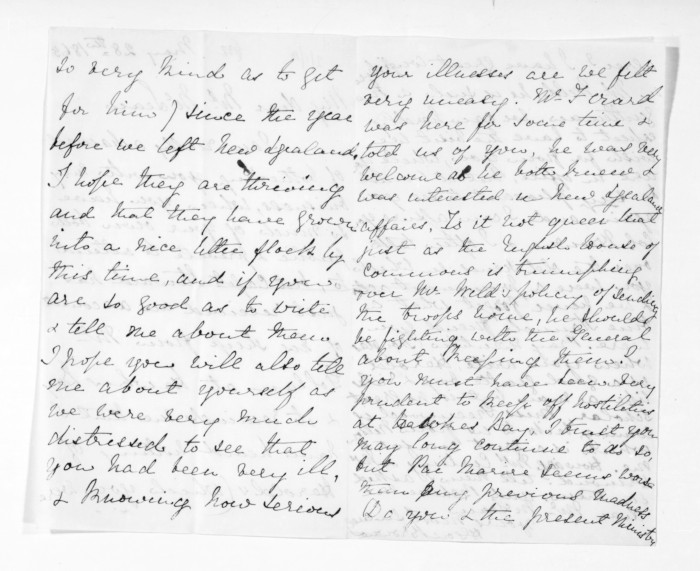 so very kind as to get
for him) since the year
before we left New Zealand,
I hope they are thriving
and that they have grown
into a nice little flock by
this time, and if you
are so good as to write
& tell me about them.
I hope you will also tell
me about yourself as
we were very much
distressed to see that
you had been very ill,
& knowing how serious
your illnesses are we felt
very uneasy. Mr
was here for some time &
told us of you, he was very
welcome as he both knew &
was interested in New Zealand
affairs. Is it not queer that
just as the English House of
Commons is triumphing
over Mr Weld's policy of sending
the troops home, he should
be fighting with the General
about keeping them?
you must have been very
prudent to keep off hostilities
at Hawkes Bay, I trust you
may long continue to do so,
but Pai Marire seems worse
than any previous madness
Do you & the present Ministry